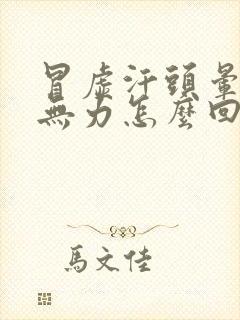 冒虛汗頭暈
無力怎麼回
馬文佳